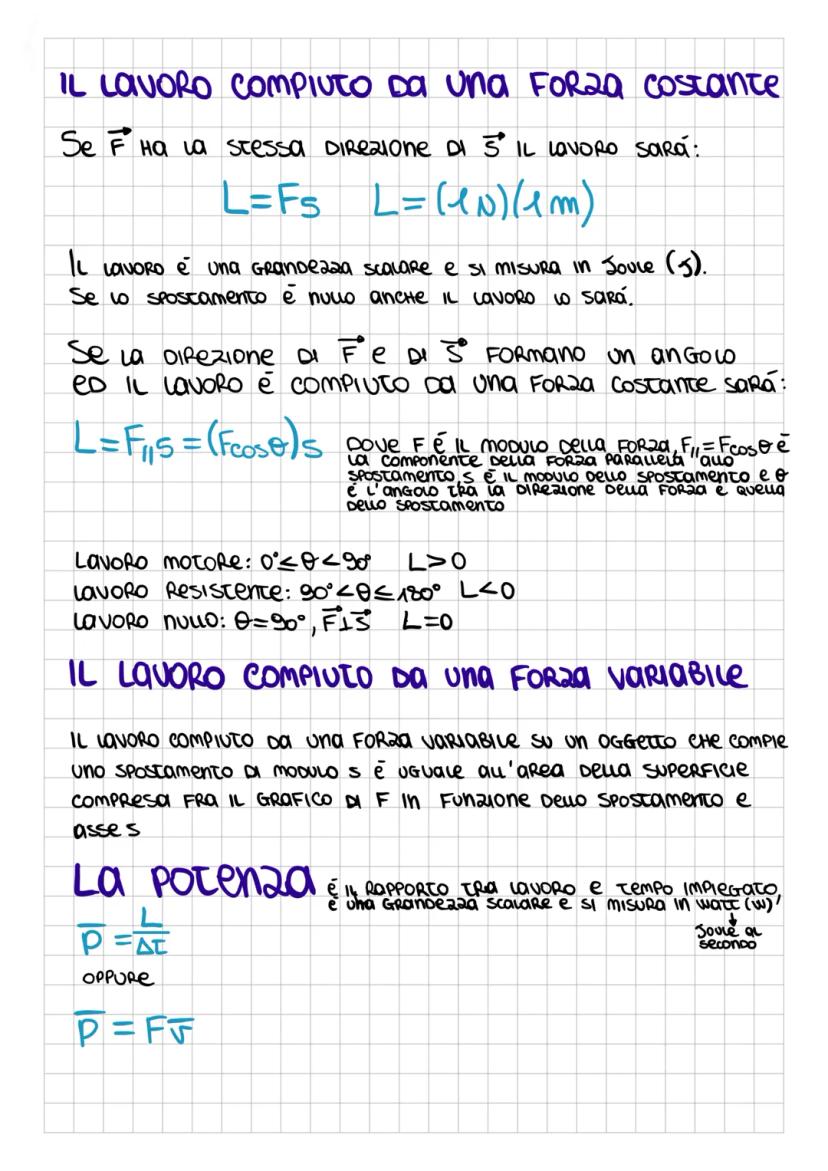 IL LAVORO COMPIUTO DA UNA FORZA COSTANTE
Se F⃗ HA LA STESSA DIREZIONE DI S⃗ IL LAVORO SARÁ:
L=Fs L=(1N)(1m)
IL LAVORO É UNA GRANDEZZA SCALARE E SI MISURA IN Joule (J).
Se LO SPOSTAMENTO É NULLO ANCHE IL LAVORO LO SARÁ.
Se LA DIREZIONE DI F⃗ E DI S⃗ FORMANO UN ANGOLO
ED IL LAVORO É COMPIUTO DA UNA FORZA COSTANTE SARÁ:
L=F∥s=(Fcosθ)s
DOVE F É IL MODULO DELLA FORZA, F∥=Fcosθ É
LA COMPONENTE DELLA FORZA PARALLELA ALLO
SPOSTAMENTO, S É IL MODULO DELLO SPOSTAMENTO E θ
É L'ANGOLO TRA LA DIREZIONE DELLA FORZA E QUELLA
DELLO SPOSTAMENTO
LAVORO MOTORE: 0°≤θ<90° L>0
LAVORO RESISTENTE: 90°<θ≤180° L<0
LAVORO NULLO: θ=90°, F⃗⊥S⃗ L=0
IL LAVORO COMPIUTO DA UNA FORZA VARIABILE
IL LAVORO COMPIUTO DA UNA FORZA VARIABILE SU UN OGGETTO CHE COMPIE
UNO SPOSTAMENTO DI MODULO S É UGUALE ALL'AREA DELLA SUPERFICIE
COMPRESA FRA IL GRAFICO DI F IN FUNZIONE DELLO SPOSTAMENTO E
ASSE S
LA POTENZA É IL RAPPORTO TRA LAVORO E TEMPO IMPIEGATO,
É UNA GRANDEZZA SCALARE E SI MISURA IN WATT (W)
↓
Joule al
secondo
P̅ = L/Δt
OPPURE
P̅ = Fv̅